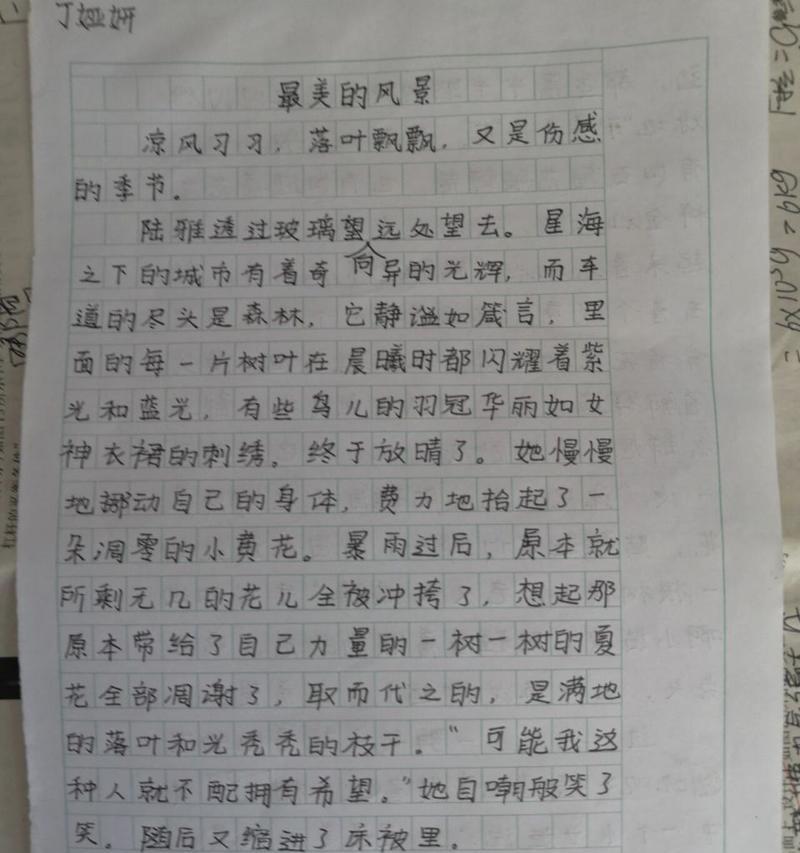 丁娅妍
最美的风景
凉风习习，落叶飘飘，又是伤感
的季节。
陆雅透过玻璃望向远处望去。星海
之下的城市有着奇异的光辉，而车
道的尽头是森林，它静谧如箴言，里
面的每一片树叶在晨曦时都闪耀着紫
光和蓝光，有些鸟儿的羽冠华丽如女
神衣裙的刺绣。终于放晴了。她慢慢
地挪动自己的身体，费力地抬起了一
朵凋零的小黄花。暴雨过后，原本就
所剩无几的花儿全被冲挎了，想起那
原本带给了自己力量的一树一树的夏
花全部凋谢了，取而代之的，是满地
的落叶和光秃秃的枝干。“可能我这
种人就不配拥有希望。”她自嘲般笑了
笑。随后又缩进了床被里。
=6×10³g=6kg